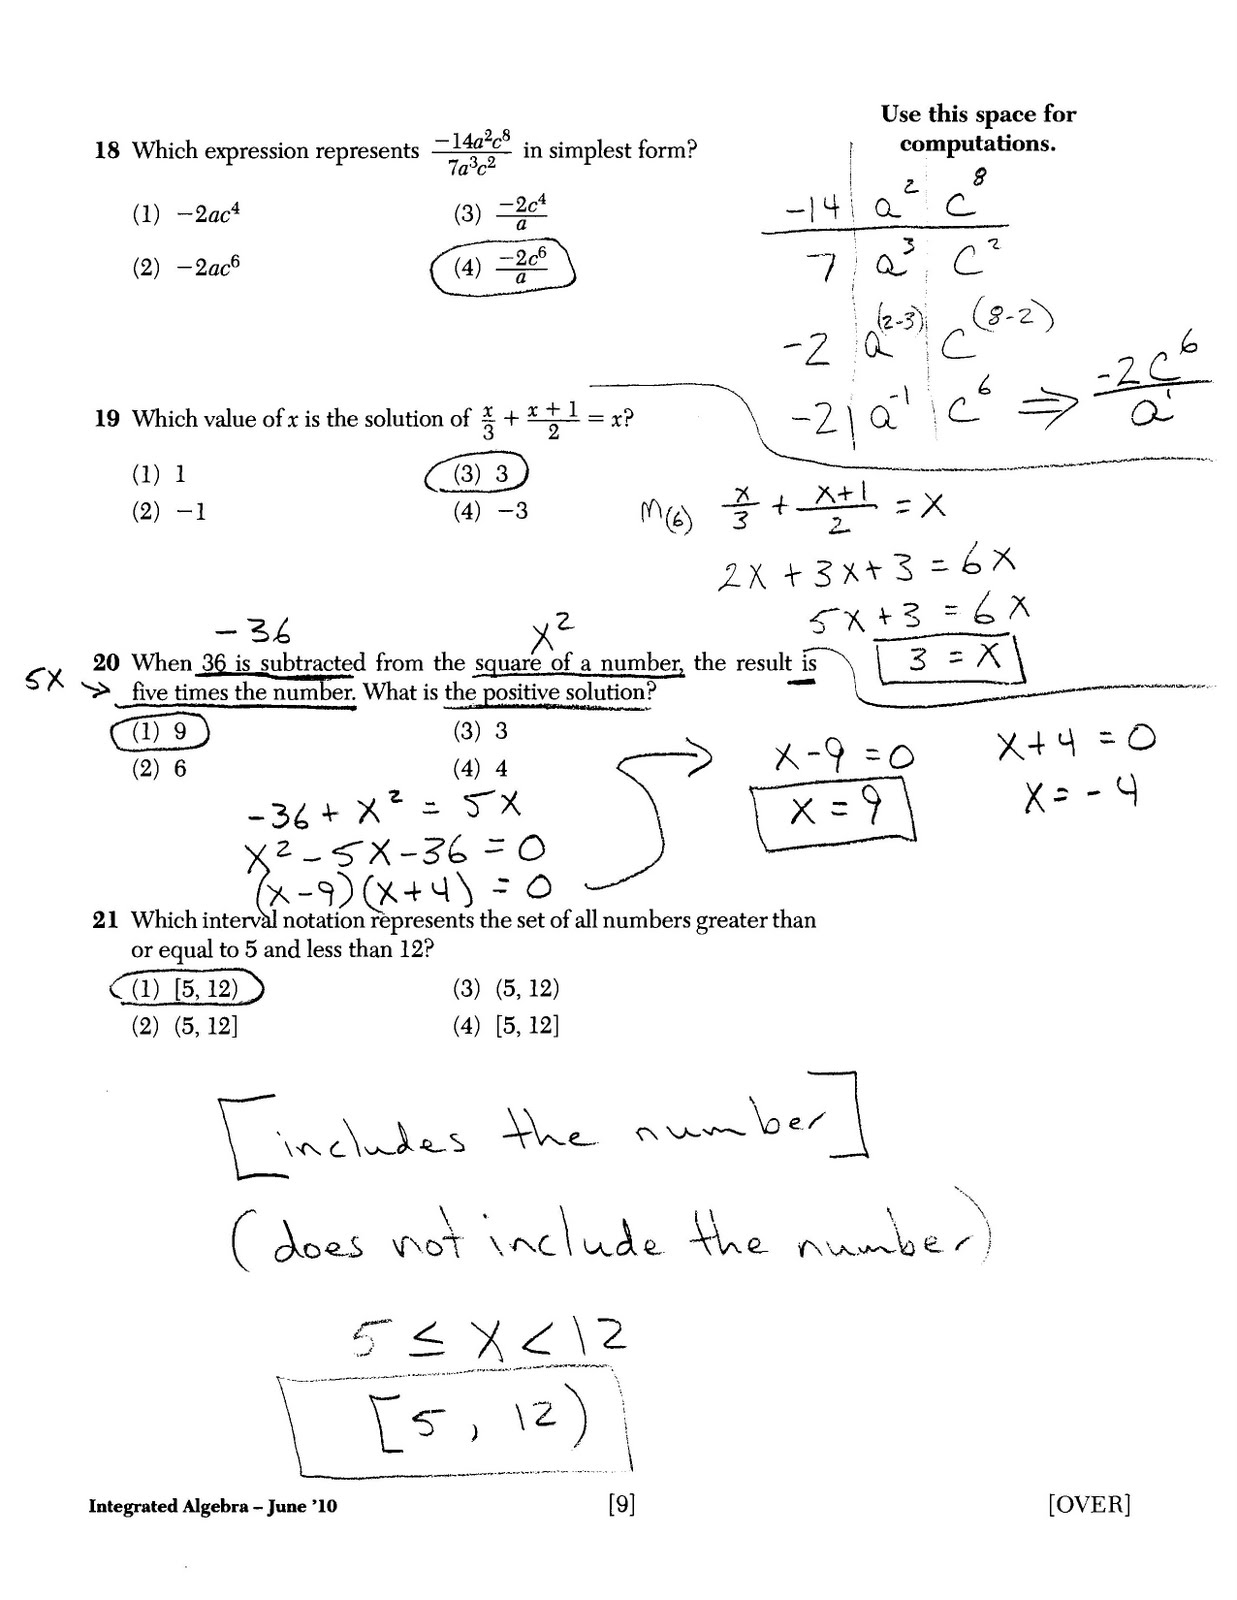 Use this space for
computations.
18 Which expression represents −14a²c⁸/7a³c² in simplest form?
(1) −2ac⁴ (3) −2c⁴/a
(2) −2ac⁶ (4) −2c⁶/a
-14 | a² | c⁸
7 | a³ | c²
-2 | a⁽²⁻³⁾ | c⁽⁸⁻²⁾
-2 | a⁻¹ | c⁶ ⇒ -2c⁶/a¹
19 Which value of x is the solution of x/3 + (x + 1)/2 = x?
(1) 1 (3) 3
(2) −1 (4) −3
M(6) x/3 + (x+1)/2 = x
2x + 3x + 3 = 6x
5x + 3 = 6x
3 = x
-36 x²
20 When 36 is subtracted from the square of a number, the result is
5x → five times the number. What is the positive solution?
(1) 9 (3) 3
(2) 6 (4) 4
-36 + x² = 5x
x² - 5x - 36 = 0
(x-9)(x+4) = 0
x - 9 = 0 x + 4 = 0
x = 9 x = -4
21 Which interval notation represents the set of all numbers greater than
or equal to 5 and less than 12?
(1) [5, 12) (3) (5, 12)
(2) (5, 12] (4) [5, 12]
[includes the number]
(does not include the number)
5 ≤ x < 12
[5, 12)
Integrated Algebra – June ’10 [9] [OVER]